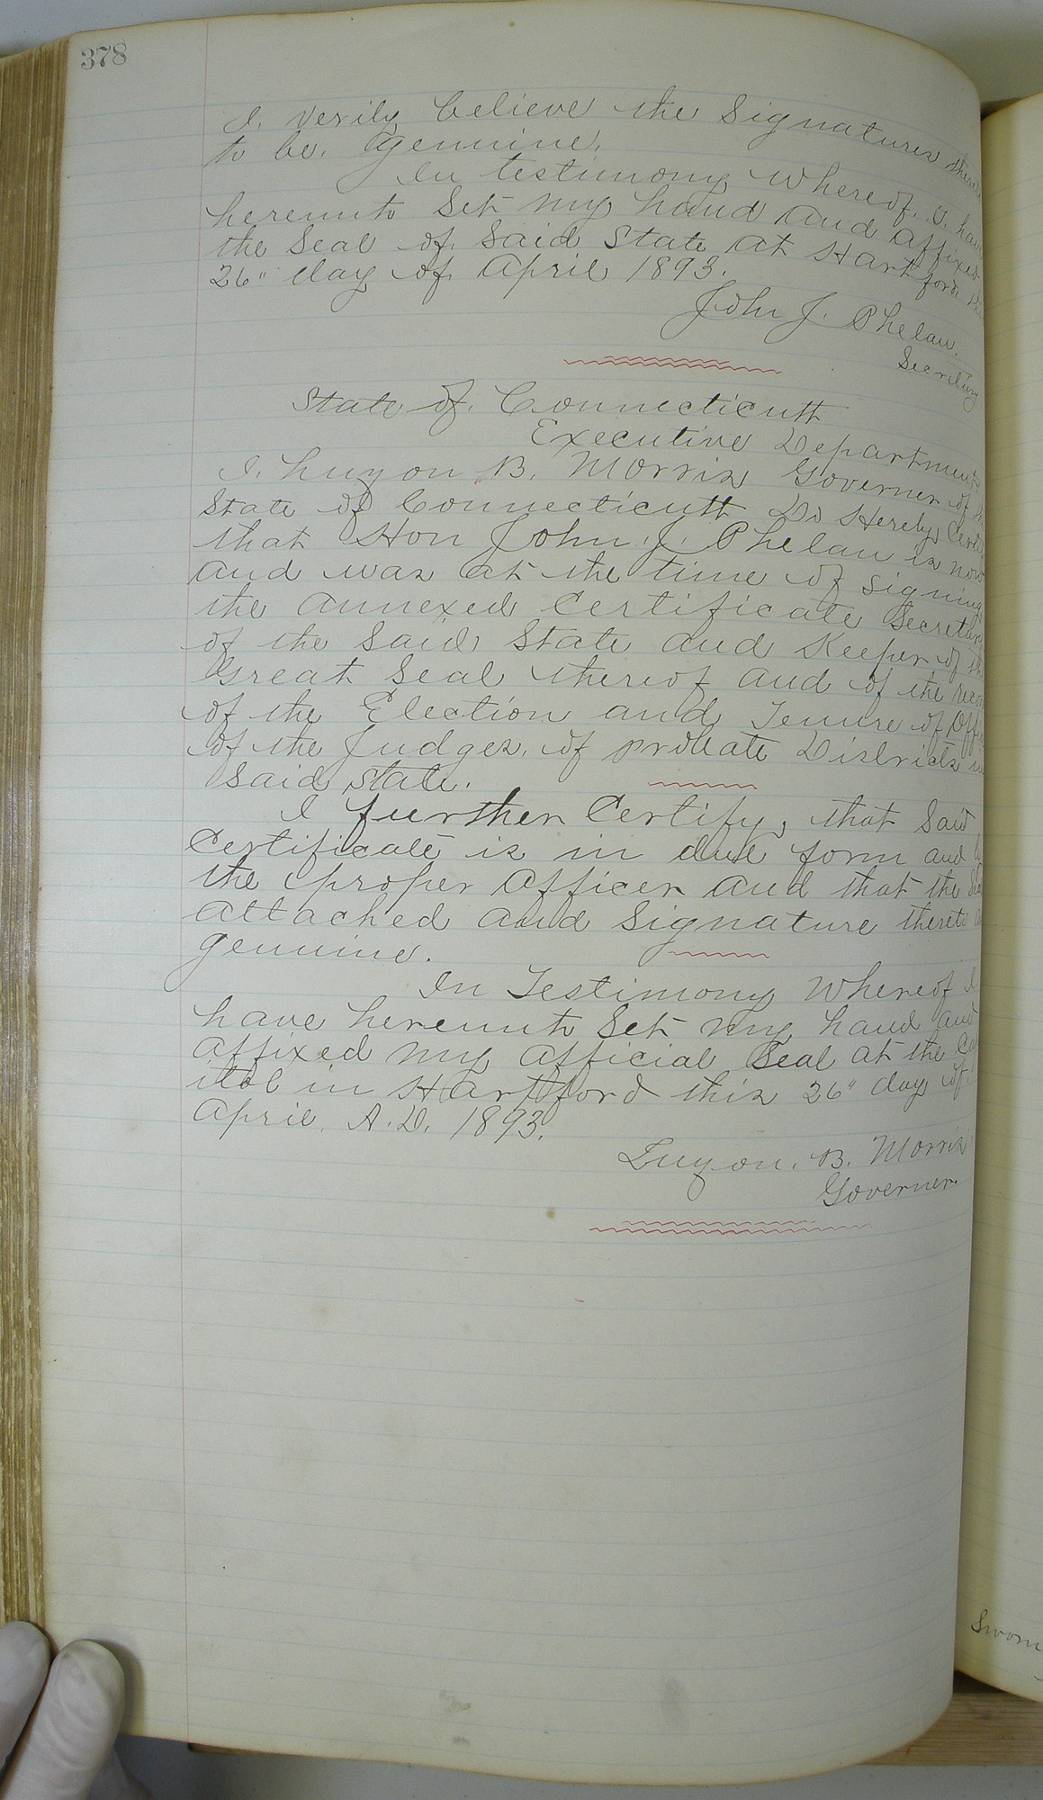 378
I. verily believe the Signatures
to be. Genuine.
In testimony Whereof. I. have
hereunto Set my hand and affixed
the Seal of. Said State at Hartford
26" day of April 1893.
John J. Phelan.
Secretary
State of. Connecticutt
Executive Department
I. Luzon B. Morris Governer of
State of Connecticutt Do Hereby
that Hon John. J. Phelan is now
and was at the time of signing
the annexed Certificate Secretary
of the Said State and Keeper of
Great Seal thereof and of the
of the Election and Tenure of
of the Judges. of probate Districts
Said State.
I further Certify, that Said
Certificate is in due form and
the proper officer and that the
attached and Signature thereto
genuine.
In Testimony Whereof I
have hereunto Set my hand and
affixed my official Seal at the
itol in Hartford this 26" day of
April. A.D. 1893.
Luzon. B. Morris
Governer.
Sworn